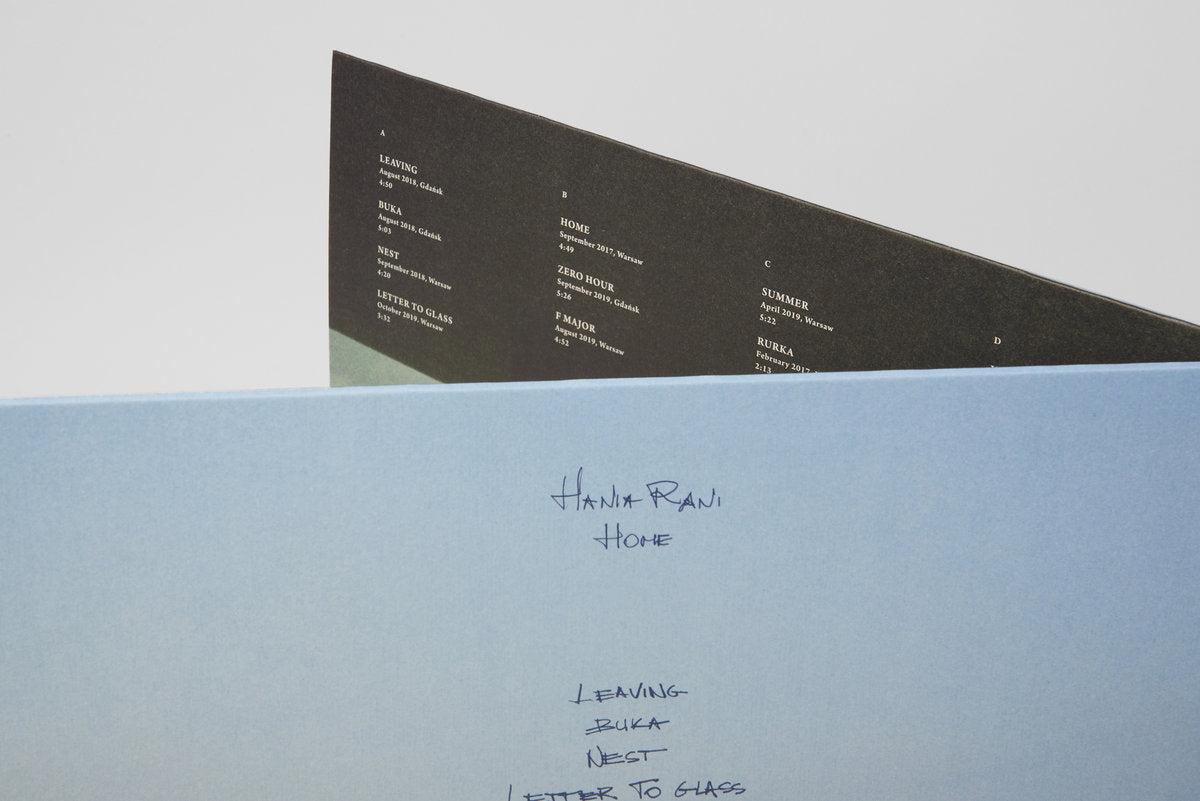 A
LEAVING
August 2018, Gdańsk
4:50
BUKA
August 2018, Gdańsk
5:03
NEST
September 2018, Warsaw
4:20
LETTER TO GLASS
October 2019, Warsaw
3:32
B
HOME
September 2017, Warsaw
4:49
ZERO HOUR
September 2019, Gdańsk
5:26
F MAJOR
August 2019, Warsaw
4:52
C
SUMMER
April 2019, Warsaw
5:22
RURKA
February 2017,
2:13
D
HANIA RANI
HOME
LEAVING
BUKA
NEST
LETTER TO GLASS